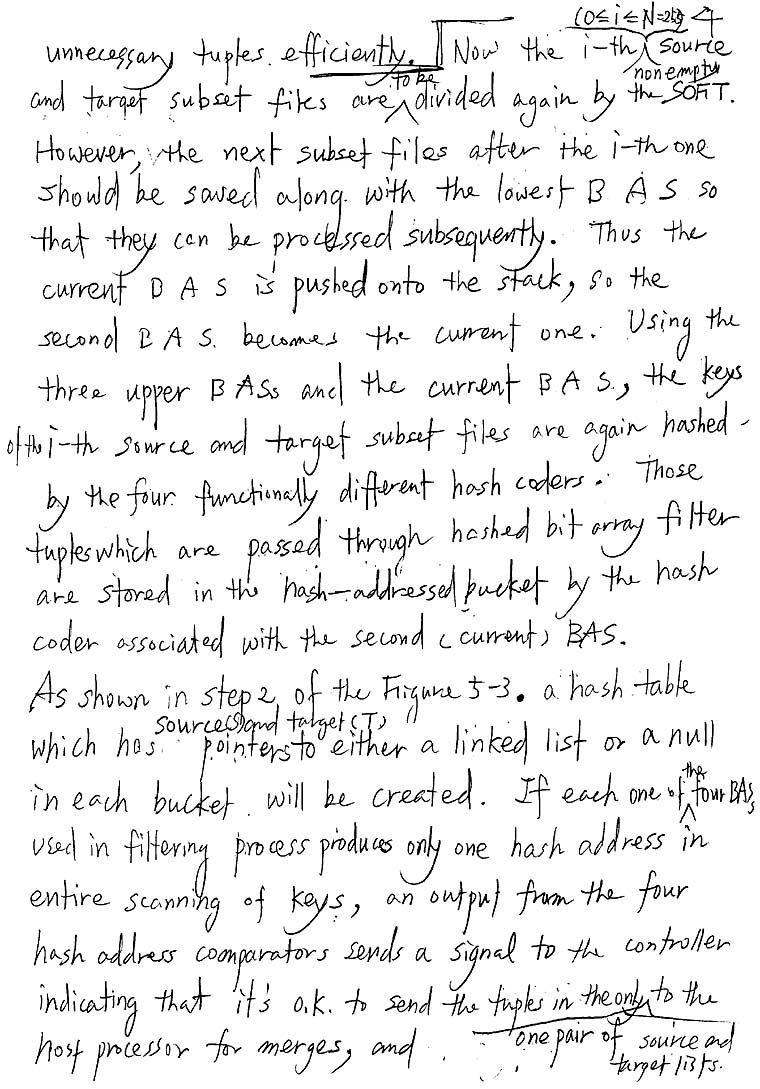 (0≤i≤N=255)
unnecessary tuples efficiently. Now the i-th source
nonempty
and target subset files are to be divided again by the SOFT.
However, the next subset files after the i-th one
should be saved along with the lowest B A S so
that they can be processed subsequently. Thus the
current B A S is pushed onto the stack, so the
second B A S. becomes the current one. Using the
three upper BASs and the current B A S., the keys
of the i-th source and target subset files are again hashed
by the four functionally different hash coders. Those
tuples which are passed through hashed bit array filter
are stored in the hash-addressed bucket by the hash
coder associated with the second (current) BAS.
As shown in step 2 of the Figure 5-3. a hash table
source(S) and target(T)
which has pointers to either a linked list or a null
in each bucket will be created. If each one of the four BASs
used in filtering process produces only one hash address in
entire scanning of keys, an output from the four
hash address comparators sends a signal to the controller
indicating that it's o.k. to send the tuples in the only to the
one pair of source and
host processor for merges, and
target lists.